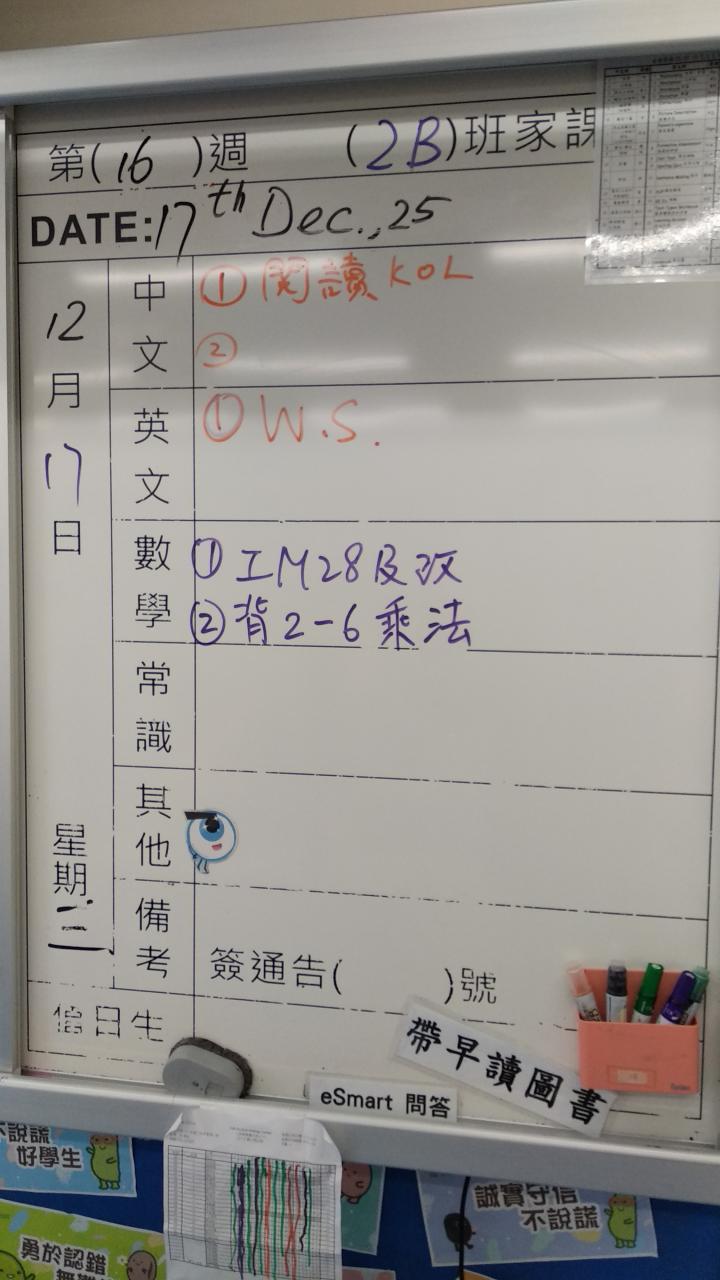 第(16)週 (2B)班家課
DATE: 17th Dec., 25
12月17日
星期三
中文
① 閱讀KOL
②
英文
① W.S.
數學
① IM28及改
② 背2-6乘法
常識
其他
備考
簽通告( )號
值日生
帶早讀圖書
eSmart 問答
不說謊
好學生
誠實守信
不說謊
勇於認錯